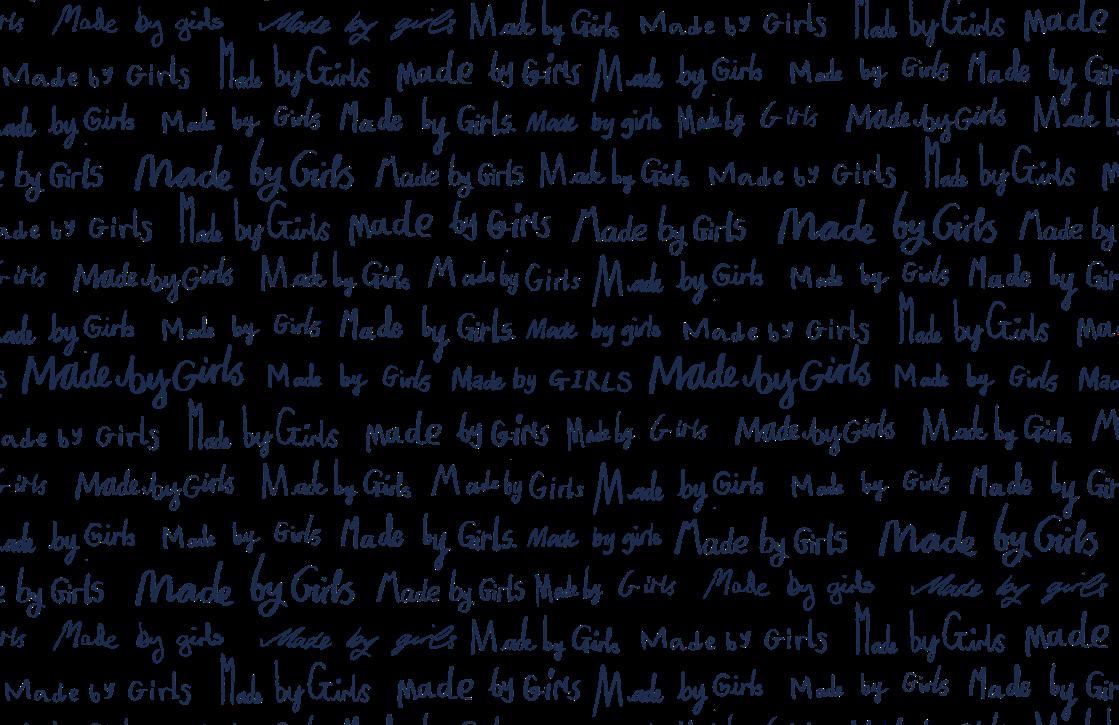 Made by girls Made by girls Made by Girls Made by Girls Made by Girls Made
Made by Girls Made by Girls Made by Girls Made by Girls Made by Girls Made by
by Girls Made by Girls Made by Girls. Made by girls Made by Girls Made by Girls
by Girls Made by Girls Made by Girls Made by Girls Made by Girls Made by Girls
by Girls Made by Girls Made by Girls Made by Girls Made by Girls Made by
Girls Made by Girls Made by Girls Made by Girls Made by Girls Made by Girls Made by
by Girls Made by Girls Made by Girls. Made by girls Made by Girls Made by Girls
Made by Girls Made by Girls Made by GIRLS Made by Girls Made by Girls
by Girls Made by Girls Made by Girls Made by Girls Made by Girls Made by Girls
Girls Made by Girls Made by Girls Made by Girls Made by Girls Made by Girls Made by
by Girls Made by Girls Made by Girls. Made by girls Made by Girls Made by Girls
by Girls Made by Girls Made by Girls Made by Girls Made by girls Made by girls
Made by girls Made by girls Made by Girls Made by Girls Made by Girls Made
Made by Girls Made by Girls Made by Girls Made by Girls Made by Girls Made by